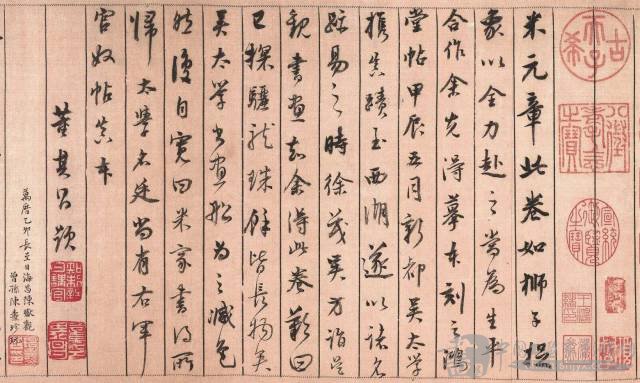 古希天子
八徵耄念之寶
宣統御覽之寶
米元章此卷如獅子捉
象以全力赴之當為生平
合作余先得摹本刻之鴻
堂帖甲辰五月新都吳太學
攜真蹟至西湖遂以諸名
跡易之時徐茂吳方詣吳
觀書畫知余得此卷歎曰
已探驪龍珠餘皆長物矣
吳太學書畫船為之減色
然復自寬曰米家書得所
歸太學名廷尚有右軍
官奴帖真本
董其昌題
萬曆乙卯長至日海昌陳瓛觀
曾孫陳